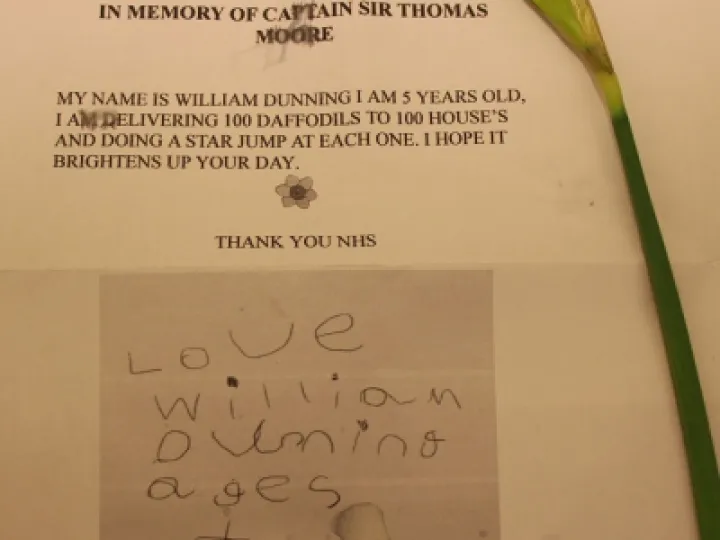 IN MEMORY OF CAPTAIN SIR THOMAS
MOORE
MY NAME IS WILLIAM DUNNING I AM 5 YEARS OLD,
I AM DELIVERING 100 DAFFODILS TO 100 HOUSE'S
AND DOING A STAR JUMP AT EACH ONE. I HOPE IT
BRIGHTENS UP YOUR DAY.
THANK YOU NHS
Love
William
Dunning
ages